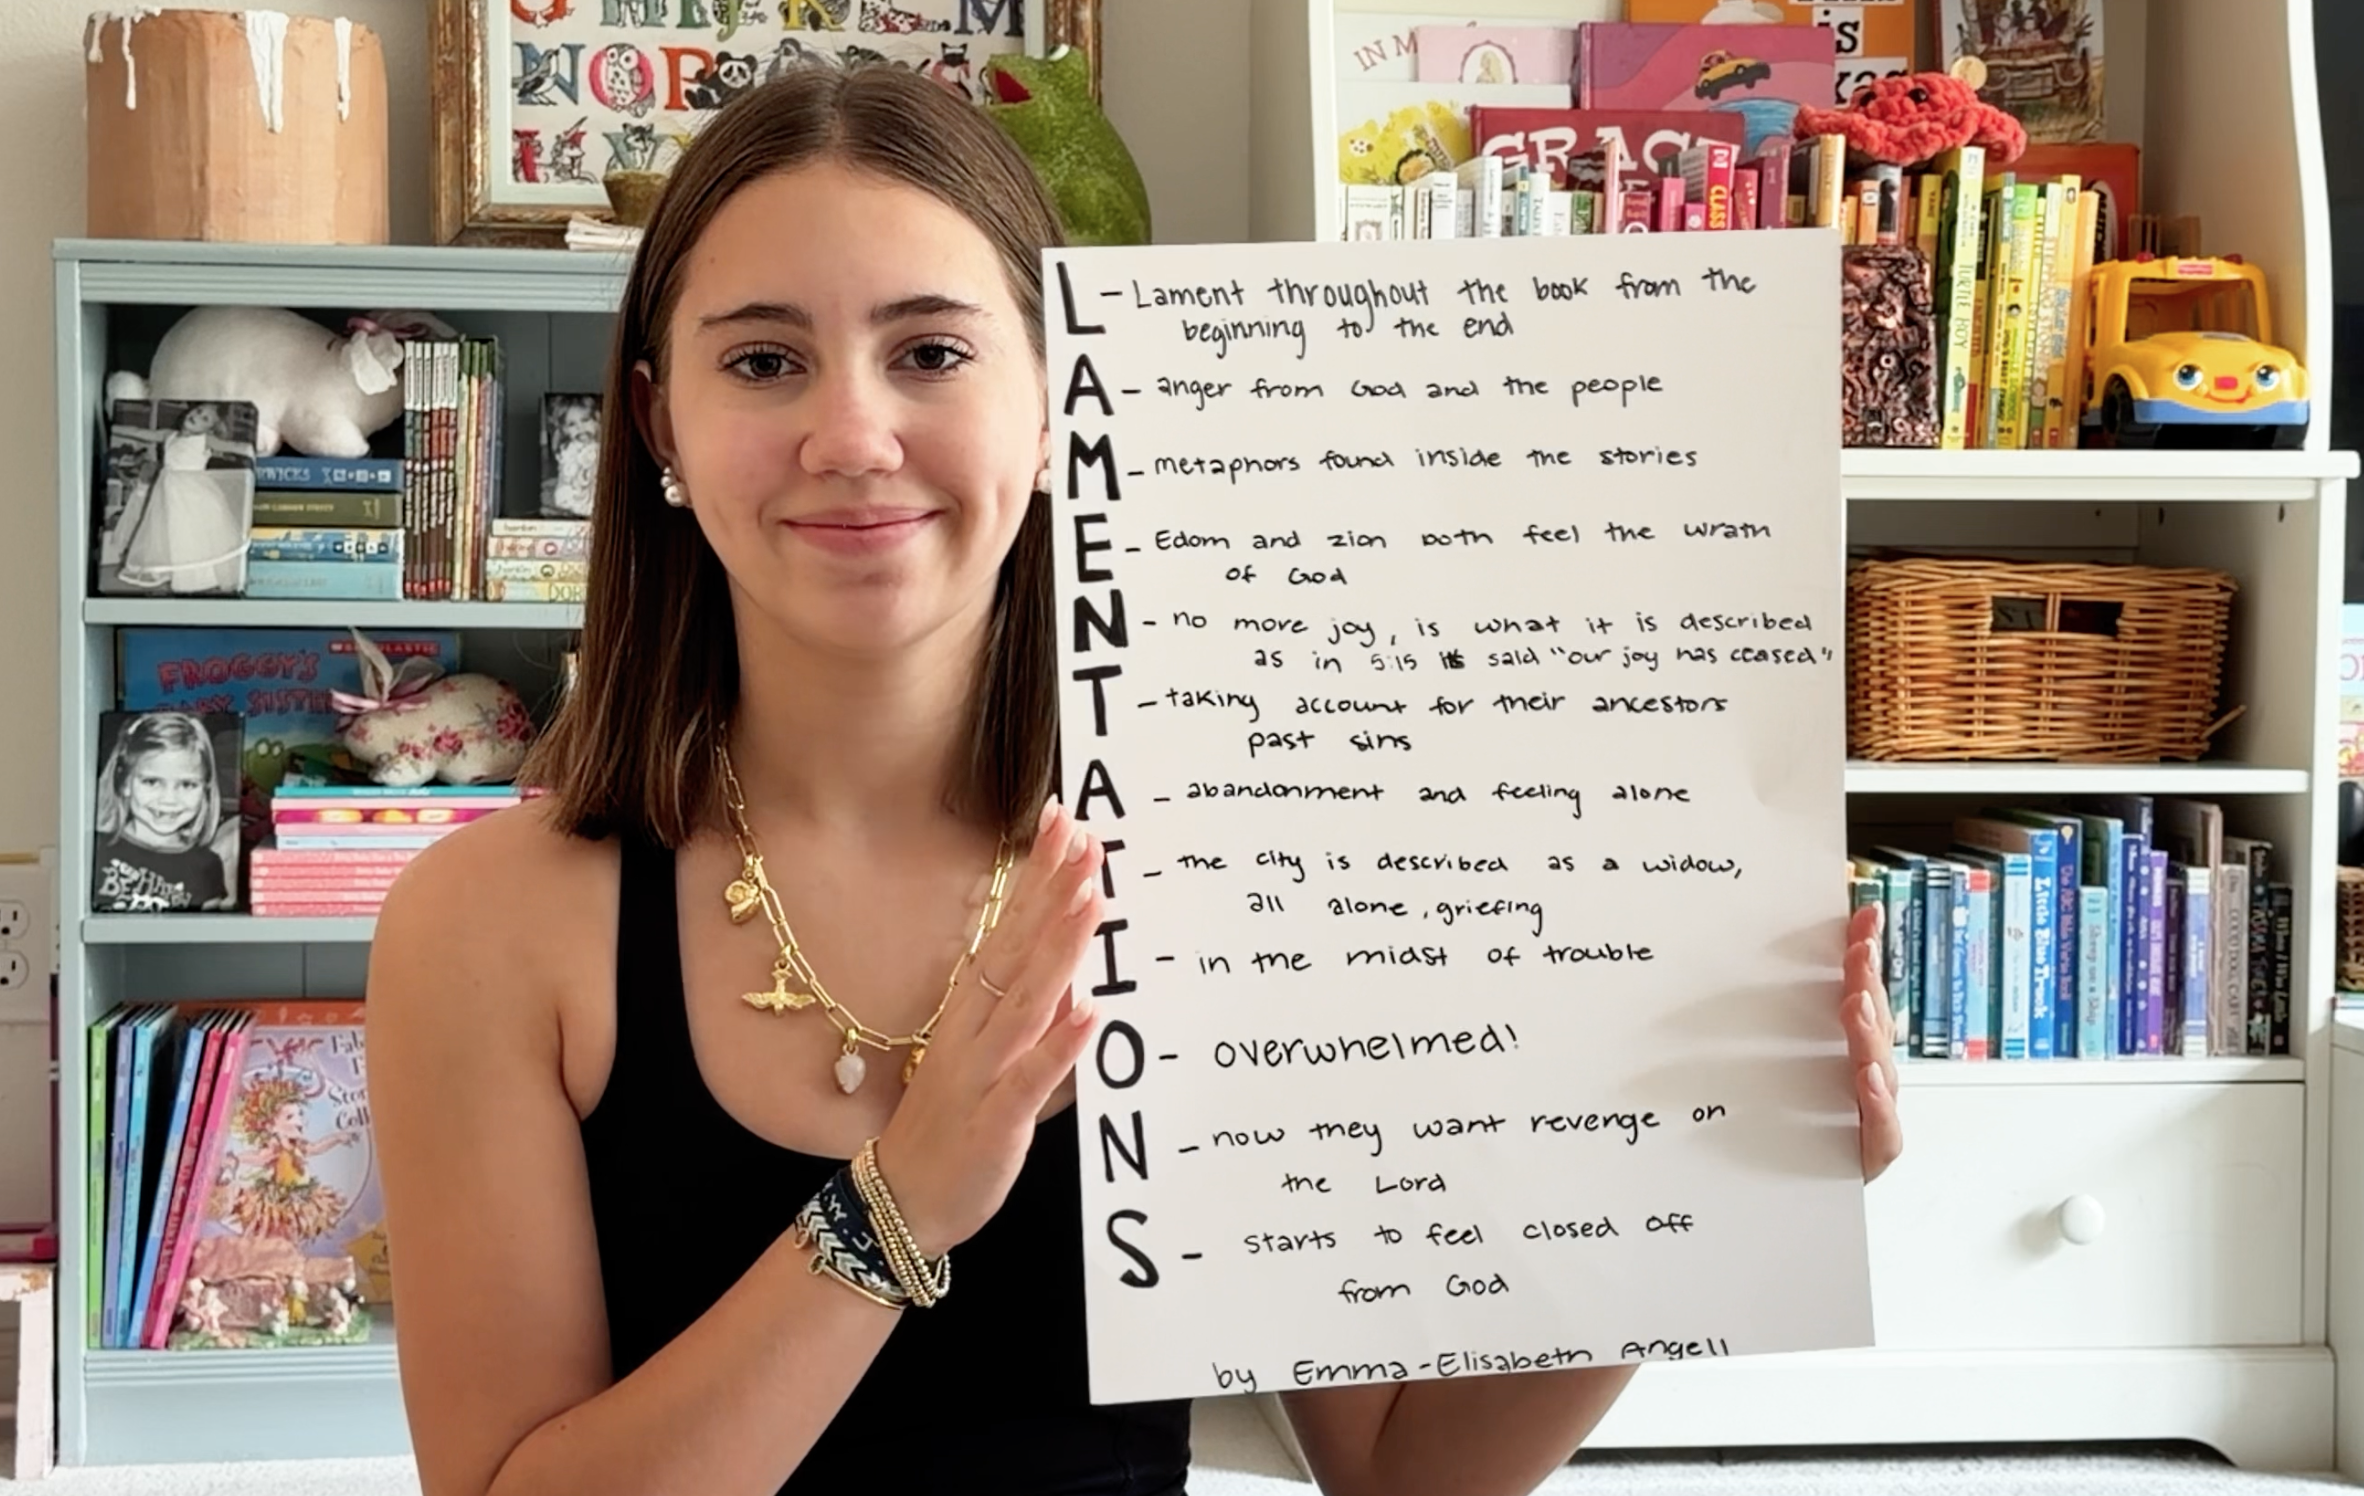 L - Lament throughout the book from the
beginning to the end
A - anger from God and the people
M - metaphors found inside the stories
E - Edom and zion both feel the wrath
of God
N - no more joy, is what it is described
as in 5:15 it's said "our joy has ceased"
T - taking account for their ancestors
past sins
A - abandonment and feeling alone
T - the city is described as a widow,
all alone, griefing
I - in the midst of trouble
O - overwhelmed!
N - now they want revenge on
the Lord
S - starts to feel closed off
from God
by Emma-Elisabeth Angell
NOP
IN M
is
GRACE
CLASS
TURTLE BOY
SCHOLASTIC
FROGGY'S
BABY SISTER
Little Blue Truck